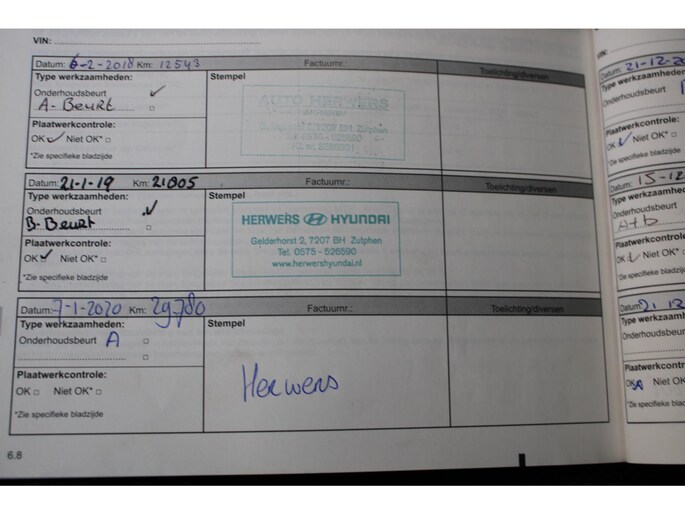 VIN:
Datum: 6-2-2018 Km: 12543 Factuurnr.: Toelichting/diversen
Type werkzaamheden: Stempel
Onderhoudsbeurt
A-Beurt
AUTO HERWERS
7207 BH Zutphen
Plaatwerkcontrole:
OK Niet OK*
*Zie specifieke bladzijde
Datum: 21-1-19 Km: 21805 Factuurnr.: Toelichting/diversen
Type werkzaamheden: Stempel
Onderhoudsbeurt
B-Beurt
HERWERS HYUNDAI
Gelderhorst 2, 7207 BH Zutphen
Tel. 0575 - 526590
www.herwershyundai.nl
Plaatwerkcontrole:
OK Niet OK*
*Zie specifieke bladzijde
Datum: 7-1-2020 Km: 29.780 Factuurnr.: Toelichting/diversen
Type werkzaamheden: Stempel
Onderhoudsbeurt A
Herwers
Plaatwerkcontrole:
OK Niet OK*
*Zie specifieke bladzijde
6.8
Datum: 21-12-20
Type werkzaamheden
Onderhoudsbeurt
Plaatwerkcontrole
OK Niet OK*
*Zie specifieke bladz
Datum: 15-12
Type werkzaamhed
Onderhoudsbeurt
A+b
Plaatwerkcontro
OK Niet OK
*Zie specifieke bladz
Datum: 21-12
Type werkzaam
Onderhoudsbeur
Plaatwerkcontr
OK Niet OK
*Zie specifieke bla